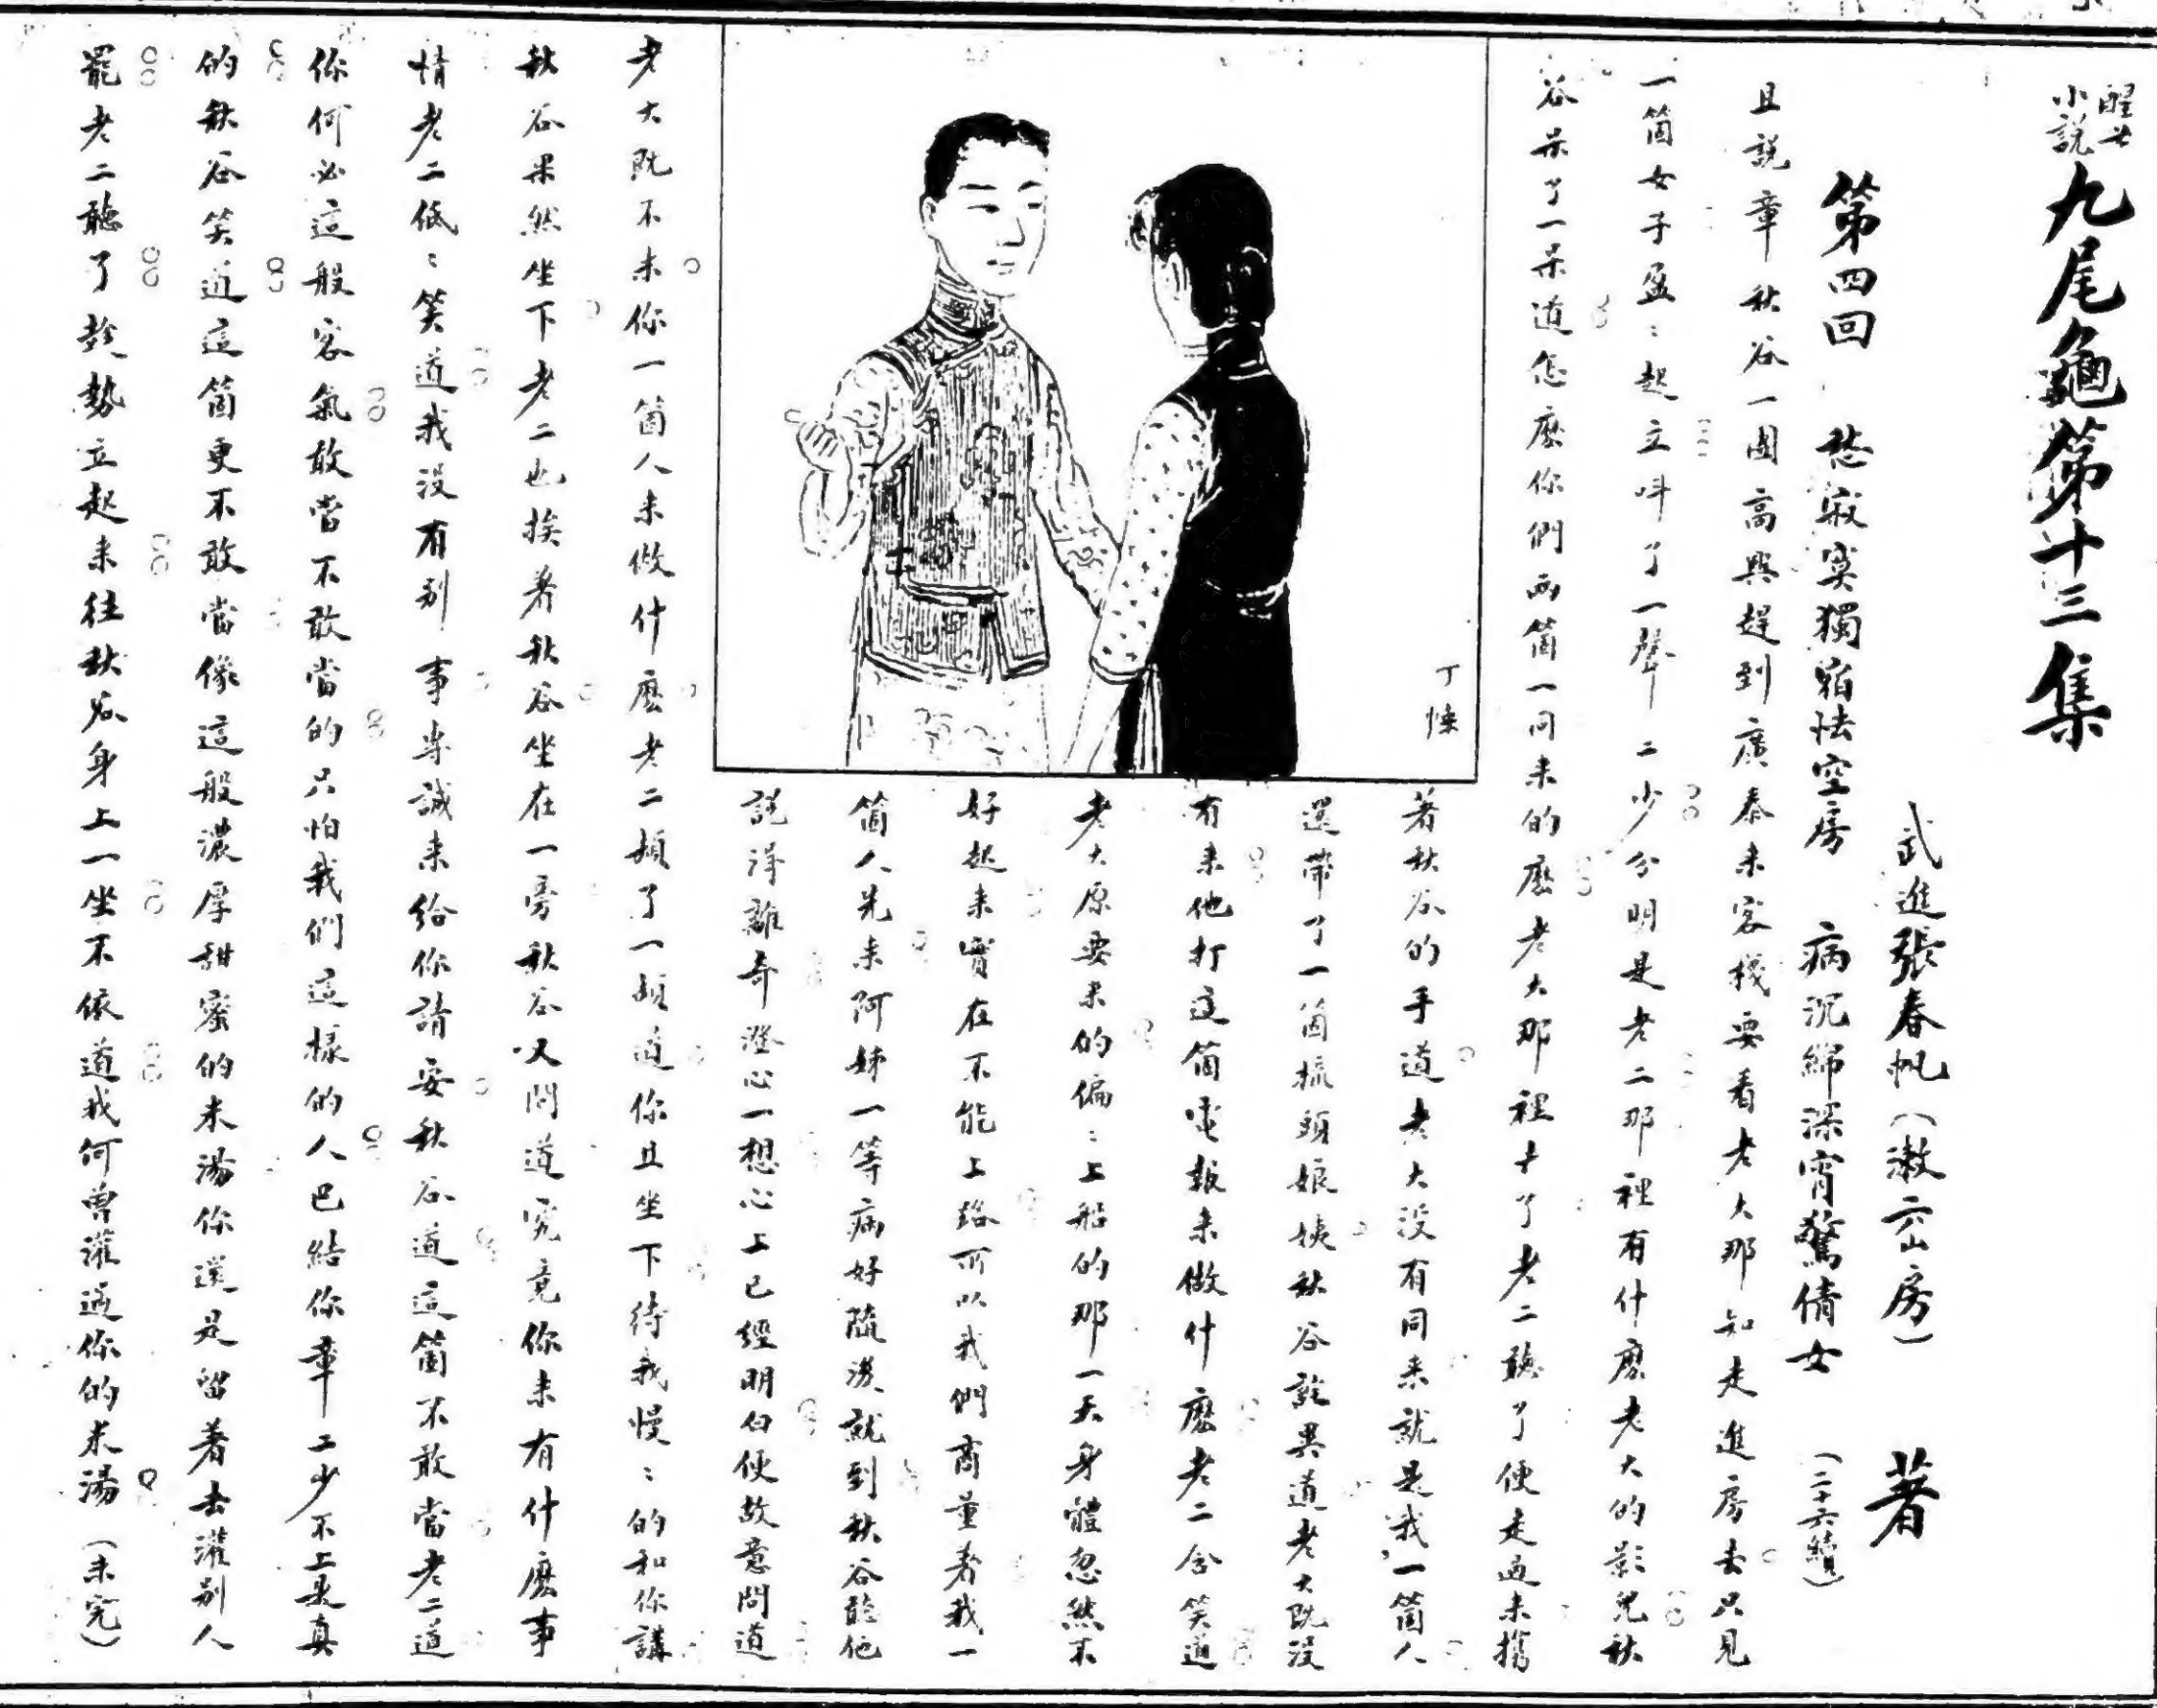 醒世小說
九尾龜第十三集
武進張春帆（漱六山房）　著
第四回　愁寂寞獨宿怯空房　病沉綿深宵驚倩女　（二十六續）
且說章秋谷一團高興趕到廣泰來客棧要看老大那知走進房去只見
一箇女子盈盈起立叫了一聲二少分明是老二那裡有什麼老大的影兒秋
谷呆了一呆道怎麼你們兩箇一同來的麼老大那裡去了老二聽了便走過來攜
著秋谷的手道老大沒有同來就是我一箇人
還帶了一箇梳頭娘姨秋谷詫異道老大既沒
有來他打這箇電報來做什麼老二含笑道
老大原要來的偏偏上船的那一天身體忽然不
好起來實在不能上路所以我們商量著我一
箇人先來阿姊一等病好隨後就到秋谷聽他
說得離奇澄心一想心上已經明白便故意問道
丁悚
老大既不來你一箇人來做什麼老二頓了一頓道你且坐下待我慢慢的和你講
秋谷果然坐下老二也挨著秋谷坐在一旁秋谷又問道究竟你來有什麼事
情老二低低笑道我沒有別事專誠來給你請安秋谷道這箇不敢當老二道
你何必這般客氣敢當不敢當的只怕我們這樣的人巴結你章二少不上是真
的秋谷笑道這箇更不敢當像這般濃厚甜蜜的米湯你還是留着去灌別人
罷老二聽了趁勢立起來往秋谷身上一坐不依道我何曾灌過你的米湯（未完）